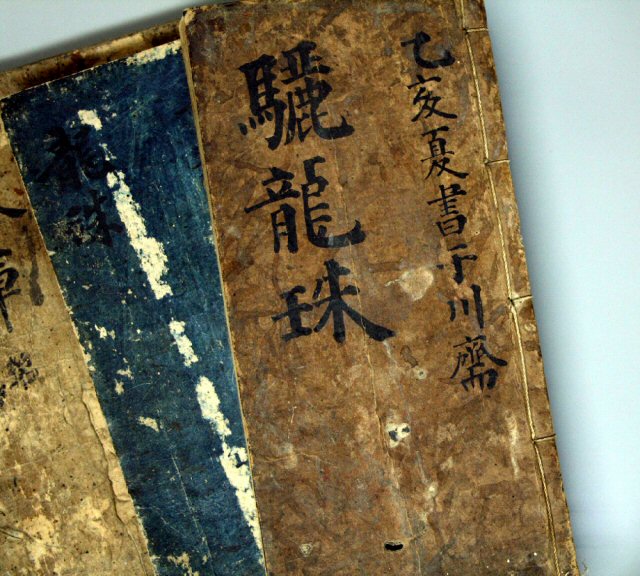 乙亥夏書于川齋
驪龍珠
龍珠